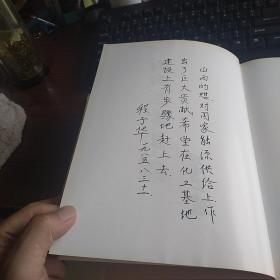 山西的煤，对国家能源供给上作
出了巨大贡献，希望在化工基地
建设上有步骤地赶上去。
程子华 一九八五、八、三十一